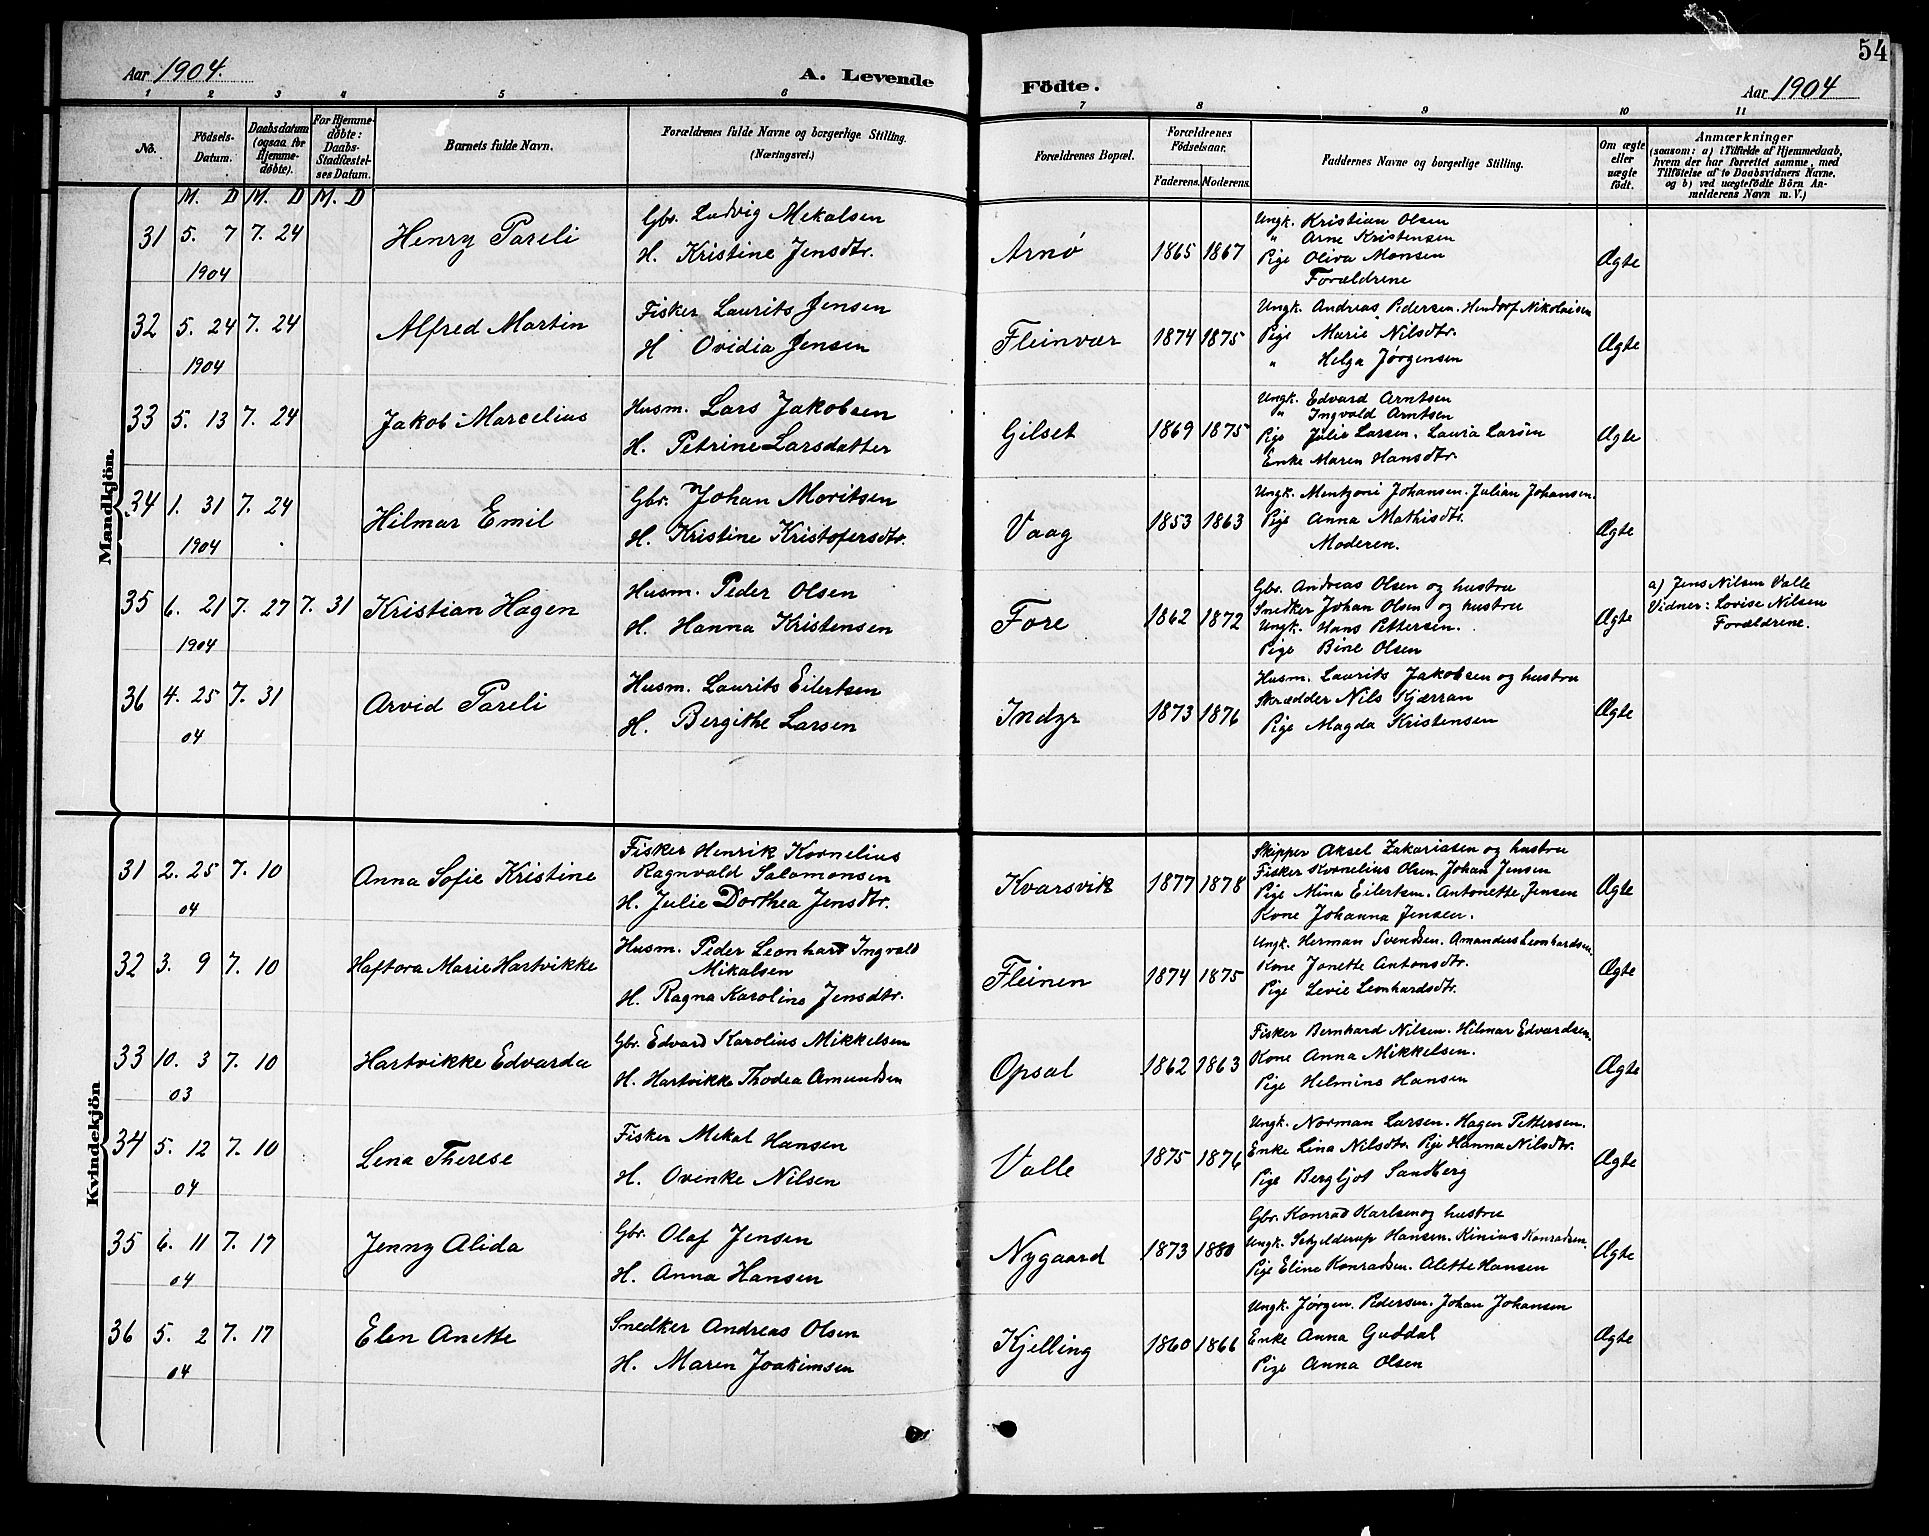 54
Aar 1904.
A. Levende
Födte.
Aar 1904
1 2 3 4 5 6 7 8 9 10 11
No.
Födsels-
Datum.
Daabsdatum
(ogsaa for
Hjemme-
döbte).
For Hjemme-
döbte:
Daabs-
Stadfæstel-
ses Datum.
Barnets fulde Navn.
Forældrenes fulde Navne og borgerlige Stilling.
(Næringsvei.)
Forældrenes Bopæl.
Forældrenes
Födselsaar.
Faderens. Moderens.
Faddernes Navne og borgerlige Stilling.
Om ægte
eller
uægte
födt.
Anmærkninger
(saasom: a) i Tilfælde af Hjemmedaab,
hvem der har forrettet samme, med
Tilföielse af to Daabsvidners Navne,
og b) ved uægtefödte Börn An-
melderens Navn m. V.)
M. D M. D M. D
Mandkjön.
31 5. 7 7. 24
1904
Henry Pareli
Gbr. Ludvig Mekalsen
H. Kristine Jensdtr.
Arnø
1865 1867
Ungk. Kristian Olsen
" Arne Kristensen
Pige Oliva Monsen
Forældrene
Ægte
32 5. 24 7. 24
1904
Alfred Martin
Fisker Laurits Jensen
H Ovidia Jensen
Fleinvær
1874 1875
Ungk. Andreas Pedersen. Hendrof Nikolaisen
Pige Marie Nilsdtr.
" Helga Jørgensen
Ægte
33 5. 13 7. 24
Jakob Marcelius
Husm. Lars Jakobsen
H. Petrine Larsdatter
Gilset
1869 1875
Ungk. Edvard Arntsen
" Ingvald Arntsen
Pige Julie Larsen. Laura Larsen
Enke Maren Hansdtr.
Ægte
34 1. 31 7. 24
1904
Hilmar Emil
Gbr. Johan Moritsen
H. Kristine Kristofersdtr.
Vaag
1853 1863
Ungk. Mentzoni Johansen. Julian Johansen.
Pige Anna Mathisdtr.
Moderen.
Ægte
35 6. 21 7. 27 7. 31
1904
Kristian Hagen
Husm. Peder Olsen
H. Hanna Kristensen
Fore
1862 1872
Gbr. Andreas Olsen og hustru
Snedker Johan Olsen og hustru
Ungk. Hans Pettersen.
Pige Bine Olsen
Ægte
a) Jens Nilsen Valle
Vidner: Lovise Nilsen
Forældrene.
36 4. 25 7. 31
04
Arvid Pareli
Husm. Laurits Eilertsen
H. Bergithe Larsen
Indyr
1873 1876
Husm. Laurits Jakobsen og hustru
Skrædder Nils Kjærran
Pige Magda Kristensen
Ægte
Kvindekjön
31 2. 25 7. 10
04
Anna Sofie Kristine
Fisker Henrik Kornelius
Ragnvald Salamonsen
H. Julie Dorthea Jensdtr.
Kvarsvik
1877 1878
Skipper Aksel Zakariasen og hustru
Fisker Kornelius Olsen. Johan Jensen
Pige Mina Eilertsen. Antonette Jensen
Kone Johanna Jensen.
Ægte
32 3. 9 7. 10
Haftora Marie Hartvikke
Husm. Peder Leonhard Ingvald
Mikalsen
H. Ragna Karoline Jensdtr.
Fleinen
1874 1875
Ungk. Herman Svendsen. Amandus Leonhardsen
Kone Jonette Antonsdtr.
Pige Levie Leonhardsdtr.
Ægte
33 10. 3 7. 10
03
Hartvikke Edvarda
Gbr. Edvard Karolius Mikkelsen
H. Hartvikke Thodea Amundsen
Opsal
1862 1863
Fisker Bernhard Nilsen. Hilmar Edvardsen.
Kone Anna Mikkelsen.
Pige Helmine Hansen
Ægte
34 5. 12 7. 10
04
Lena Therese
Fisker Mekal Hansen
H. Ovenke Nilsen
Valle
1875 1876
Ungk. Norman Larsen. Hagen Pettersen.
Enke Lina Nilsdtr. Pige Hanna Nilsdtr.
Pige Bergljot Sandberg
Ægte
35 6. 11 7. 17
04
Jenny Alida
Gbr. Olaf Jensen
H. Anna Hansen
Nygaard
1873 1880
Gbr. Konrad Karlsen og hustru
Ungk. Schjelderup Hansen. Kinius Konradsen.
Pige Eline Konradsen. Alette Hansen
Ægte
36 5. 2 7. 17
04
Elen Anette
Snedker Andreas Olsen
H. Maren Joakimsen
Kjelling
1860 1866
Ungk. Jørgen. Pedersen. Johan Johansen
Enke Anna Guddal
Pige Anna Olsen
Ægte